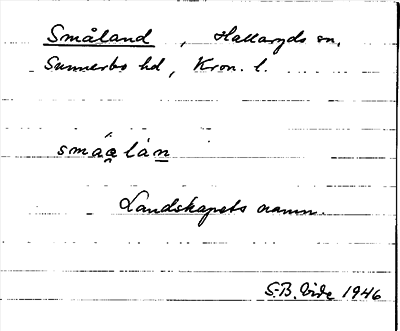 Småland, Hallaryds sn,
Sunnerbo hd, Kron. l.
småa̯lån
Landskapets namn.
S.B. Vide 1946